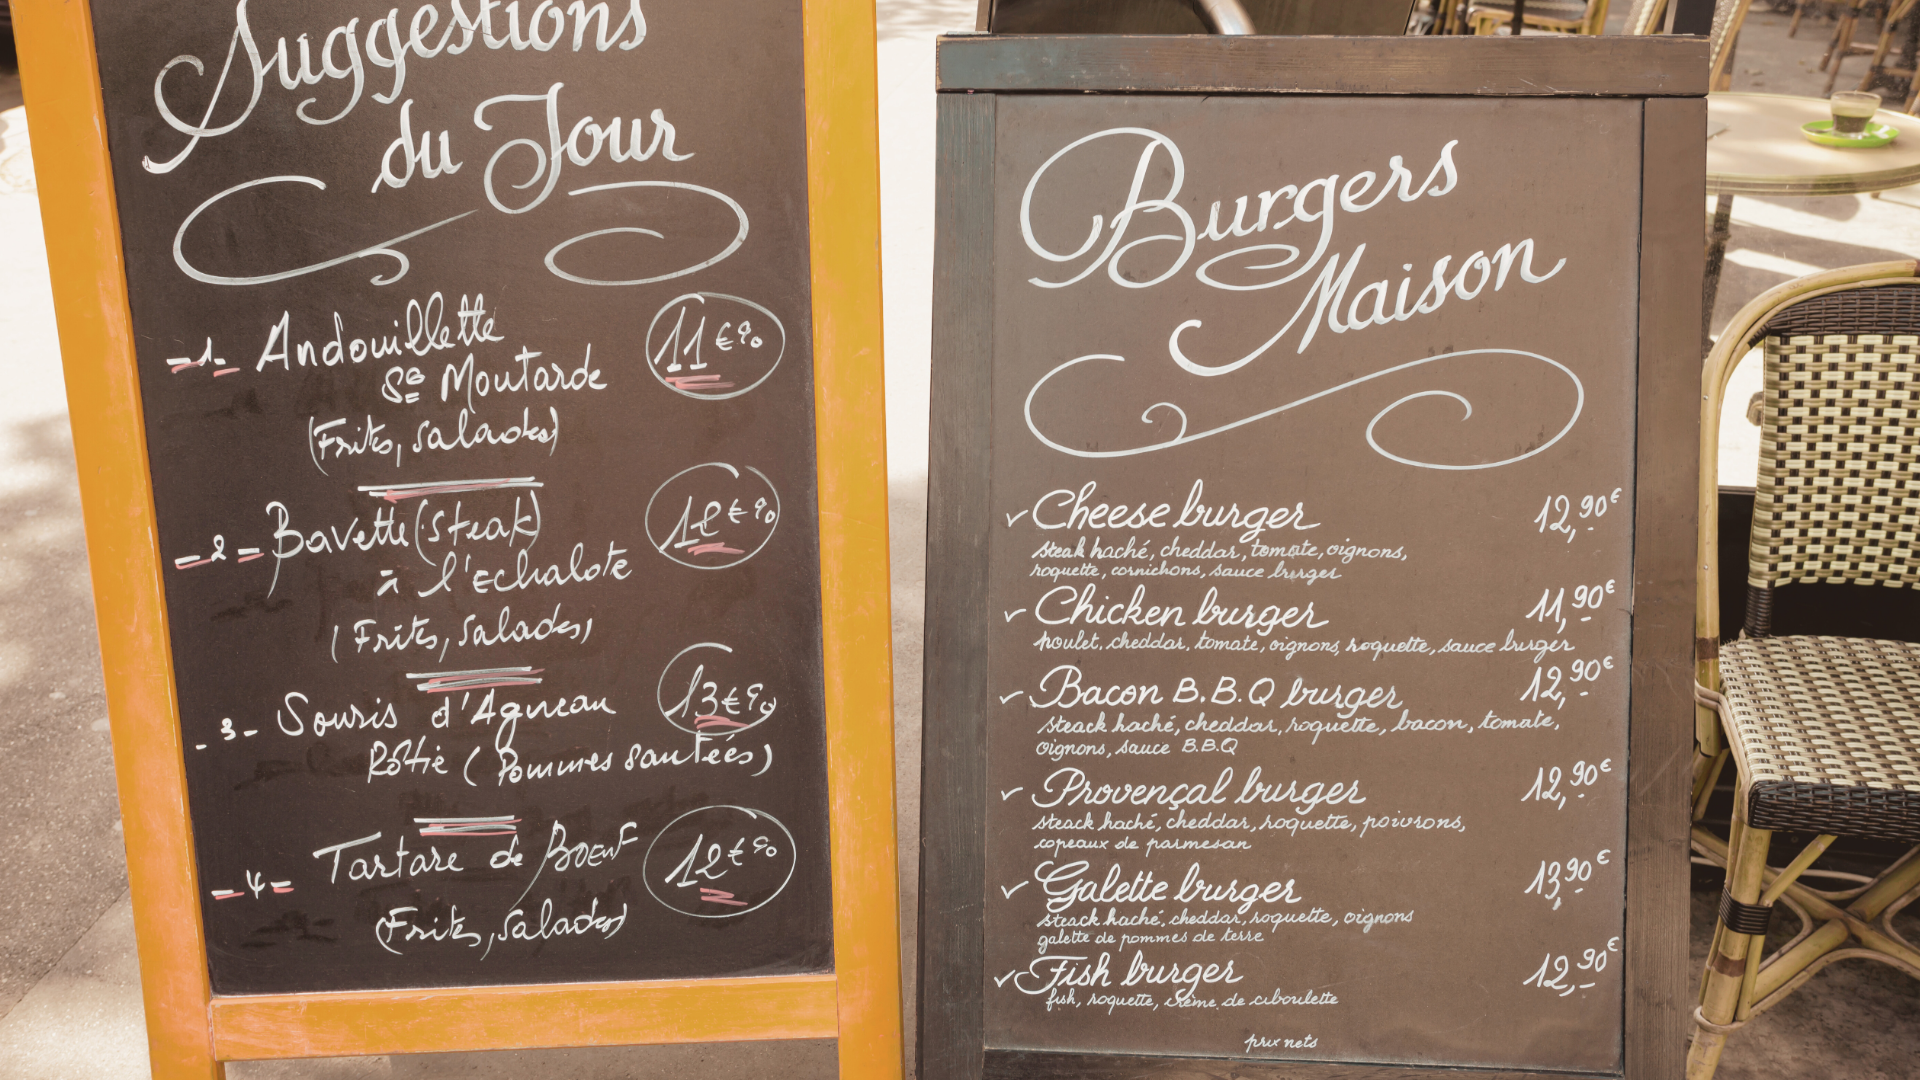 Suggestions
du Jour
-1- Andouillette 11€90
Sce Moutarde
(Frites, Salades)
-2- Bavette (Steak) 12€90
à l'Echalote
(Frites, Salades)
-3- Souris d'Agneau 13€90
Rôtie (Pommes sautées)
-4- Tartare de Boeuf 12€90
(Frites, Salades)
Burgers
Maison
✓ Cheese burger 12,90€
steak haché, cheddar, tomate, oignons,
roquette, cornichons, sauce burger
✓ Chicken burger 11,90€
poulet, cheddar, tomate, oignons, roquette, sauce burger
✓ Bacon B.B.Q burger 12,90€
steack haché, cheddar, roquette, bacon, tomate,
oignons, sauce B.B.Q
✓ Provençal burger 12,90€
steack haché, cheddar, roquette, poivrons,
copeaux de parmesan
✓ Galette burger 13,90€
steack haché, cheddar, roquette, oignons
galette de pommes de terre
✓ Fish burger 12,90€
fish, roquette, crème de ciboulette
prix nets